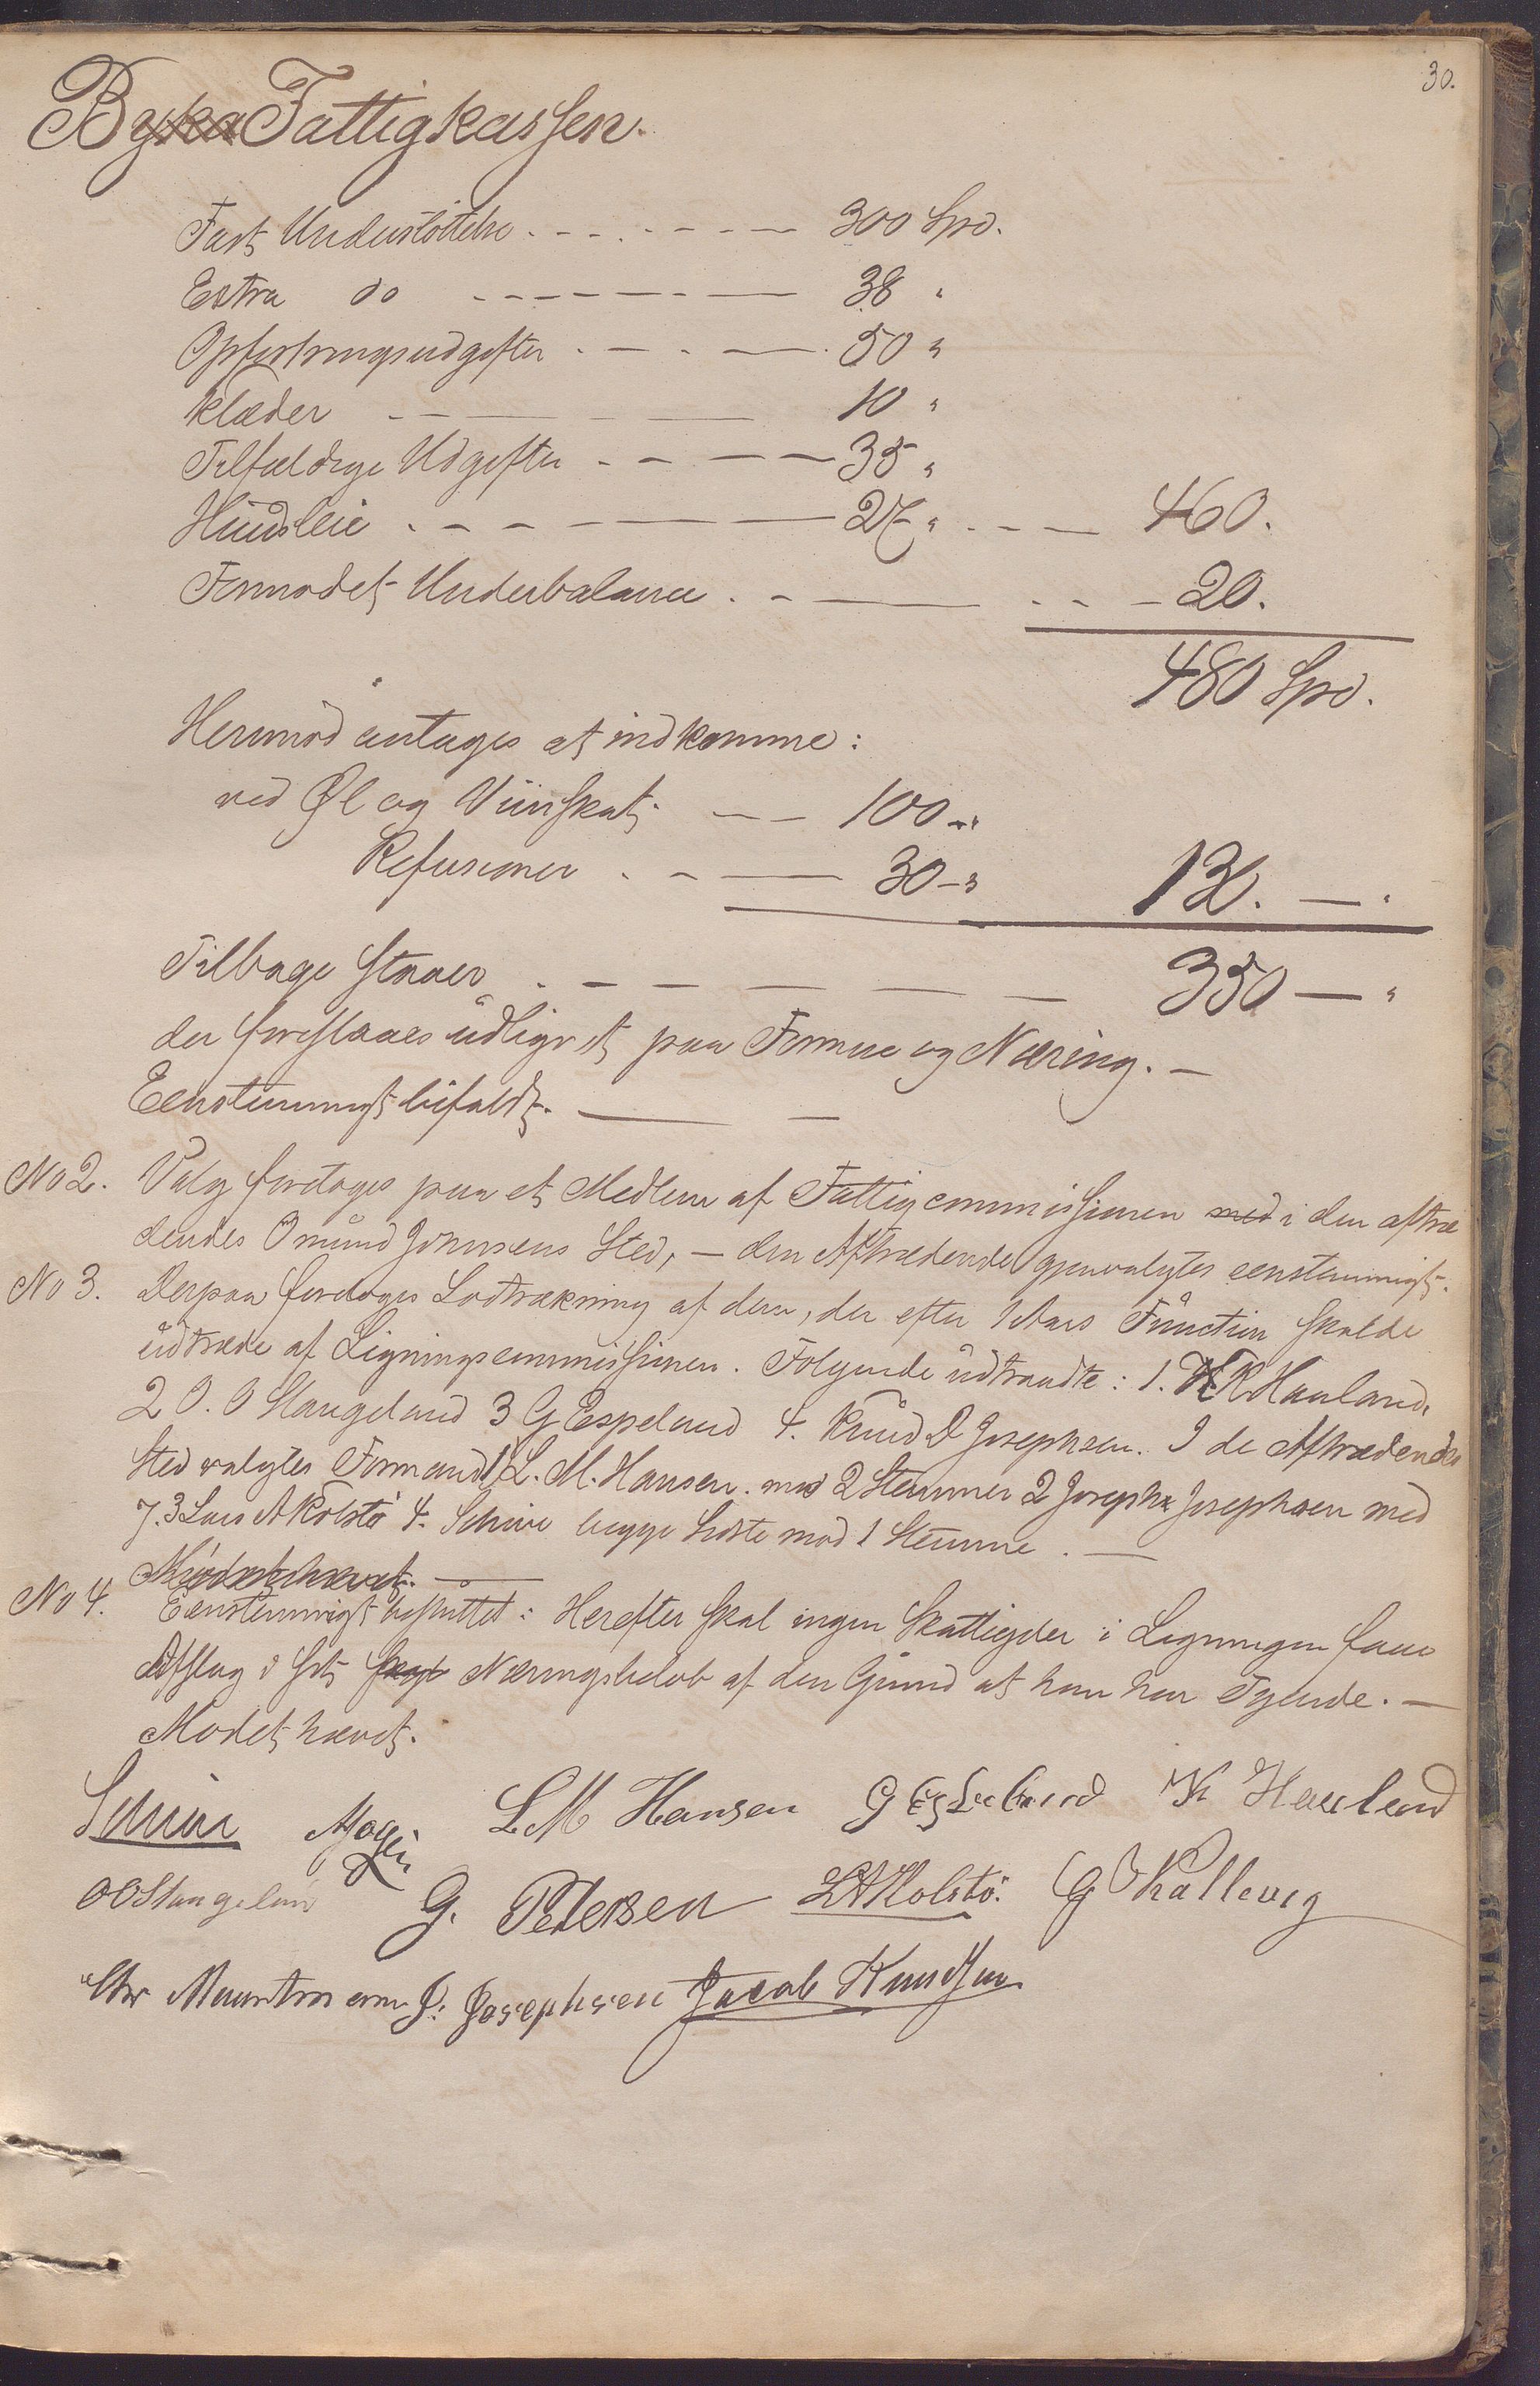 30.
Byka Fattigkassen.
Fast Understøttelse . - - . - - - — 300 Spd.
Extra do - - - — - — 38 "
Opfostringsudgifter . — . — . 50 "
Klæder — — - — 10 "
Tilfældige Udgifter - - — — 35 "
Huusleie . - - - — — 27 " . - — 460.
Formodet Underbalance . - — . - - 20.
480 Spd.
Herimod antages at indkomme:
ved Øl og Viinskat — - 100 - "
Refusioner . - — 30 - " 130. — "
Tilbage Staaer . - — — — — 350 — "
der foreslaaes udlignet paa Formue og Næring. —
Eenstemmigt bifaldt. — —
No 2. Valg foretoges paa et Medlem af Fattigcommissionen med i den aftræ
dendes Omund Johnsens Sted, — den Aftrædende gjenvalgtes eenstemmigt.
No 3. Derpaa foretoges Lodtrækning af dem, der efter 1 Aars Function skulde
udtræde af Ligningscommissionen. Følgende udtraadte: 1. K Hauland,
2 O. O Stangeland 3 G Espeland 4. Knud D Josephsen. I de Aftrædendes
Sted valgtes Formand 1 L. M. Hansen. med 2 Stemmer 2 Joseph Josephsen med
7. 3 Lars A Kolstø 4. Schiøe begge sidste med 1 Stemme . —
Mødet hævet. —
No 4. Eenstemmigt besluttet: Herefter skal ingen Skatteyder i Ligningen faae
Afslag i sit Næringsbeløb af den Grund at han har Tyende. —
Mødet hævet.
LM Hansen G Espeland K Hauland
OO Stangeland G. Petersen LA Kolstø. G Kallevig
Chr J. Josephsen Jacob Knudsen